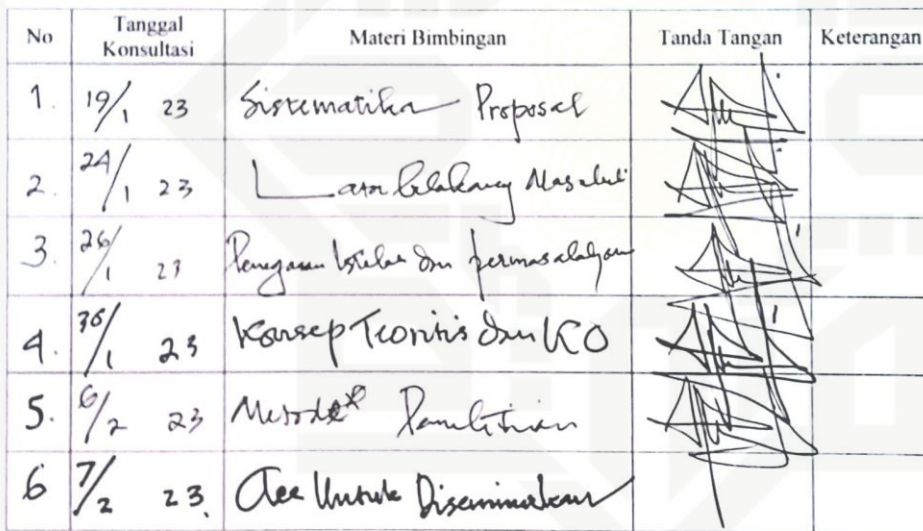 No Tanggal Konsultasi Materi Bimbingan Tanda Tangan Keterangan
1. 19/1 23 Sistematika Proposal
2. 24/1 23 Latar belakang Masalah
3. 26/1 23 Penegasan Istilah dan permasalahan
4. 30/1 23 Konsep Teoritis dan KO
5. 6/2 23 Metode Penelitian
6 7/2 23. Acc Untuk Diseminarkan